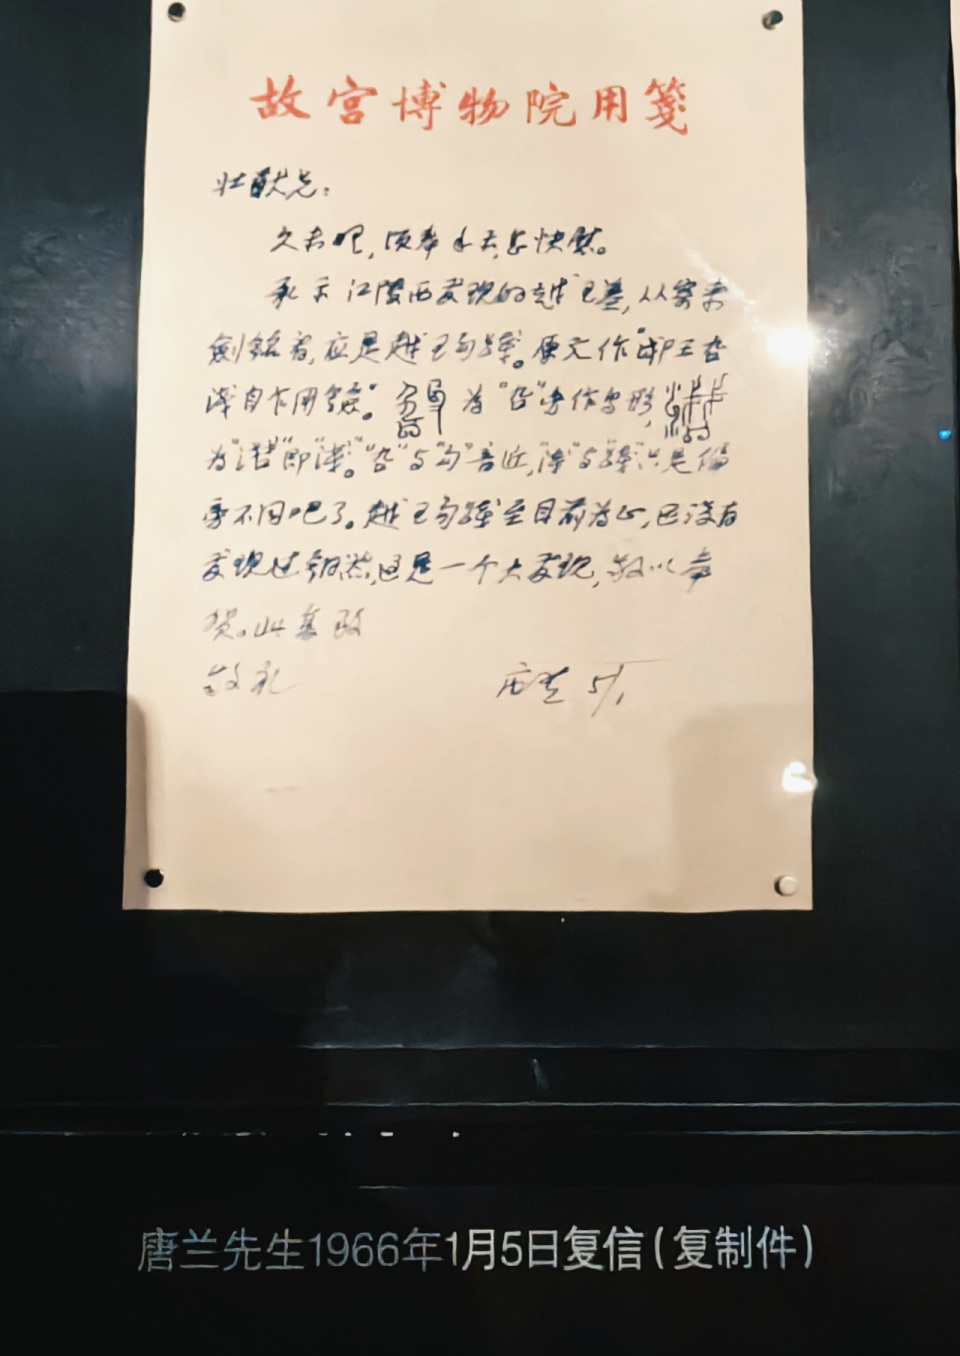 故宫博物院用笺
壮猷兄：
久未晤，顷奉手书，至快慰。
承示江陵所发现的越王墓，从寄来
剑铭看，应是越王句践。原文作“邵王古
浅自作用鐱”。为“古”字作鸟形，
为“浅”即“浅”。“古”与“句”音近，“浅”与“践”只是偏
旁不同吧了。越王句践至目前为止，还没有
发现过铜器，这是一个大发现，敬以奉
贺。此复致
敬礼
唐兰 5/1
唐兰先生1966年1月5日复信(复制件)